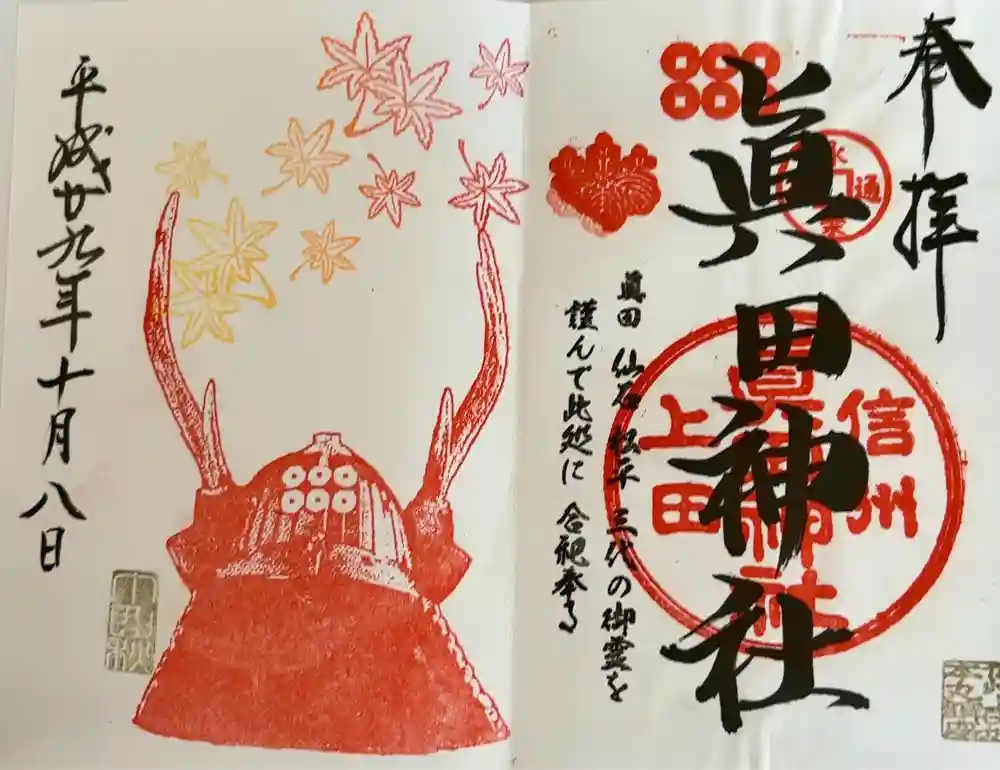 奉拝
眞田神社
信州
眞田神社
上田
眞田 仙石 松平 三代の御霊を
謹んで此処に 合祀奉る
平成廿九年十月八日